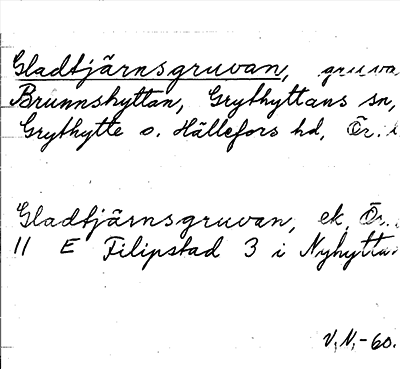 Gladtjärnsgruvan, gruva
Brunnshyttan, Grythyttans sn,
Grythytte o. Hällefors hd, Ör.
Gladtjärnsgruvan, ek. Ör.
11 E Filipstad 3 i Nyhytta
V.N.-60.